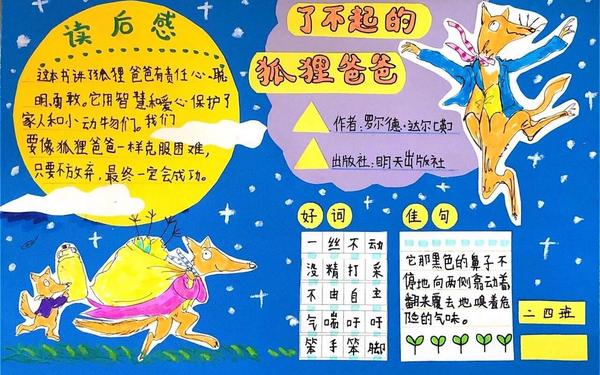 读后感
这本书讲了狐狸爸爸有责任心、聪
明、勇敢。它用智慧和爱心保护了
家人和小动物们。我们
要像狐狸爸爸一样克服困难,
只要不放弃,最终一定会成功。
了不起的
狐狸爸爸
作者:罗尔德·达尔[英]
出版社:明天出版社
好词
一丝不动
没精打采
不由自主
气喘吁吁
笨手笨脚
佳句
它那黑色的鼻子不
停地向两侧翕动着
翻来覆去地嗅着危
险的气味。
二四班